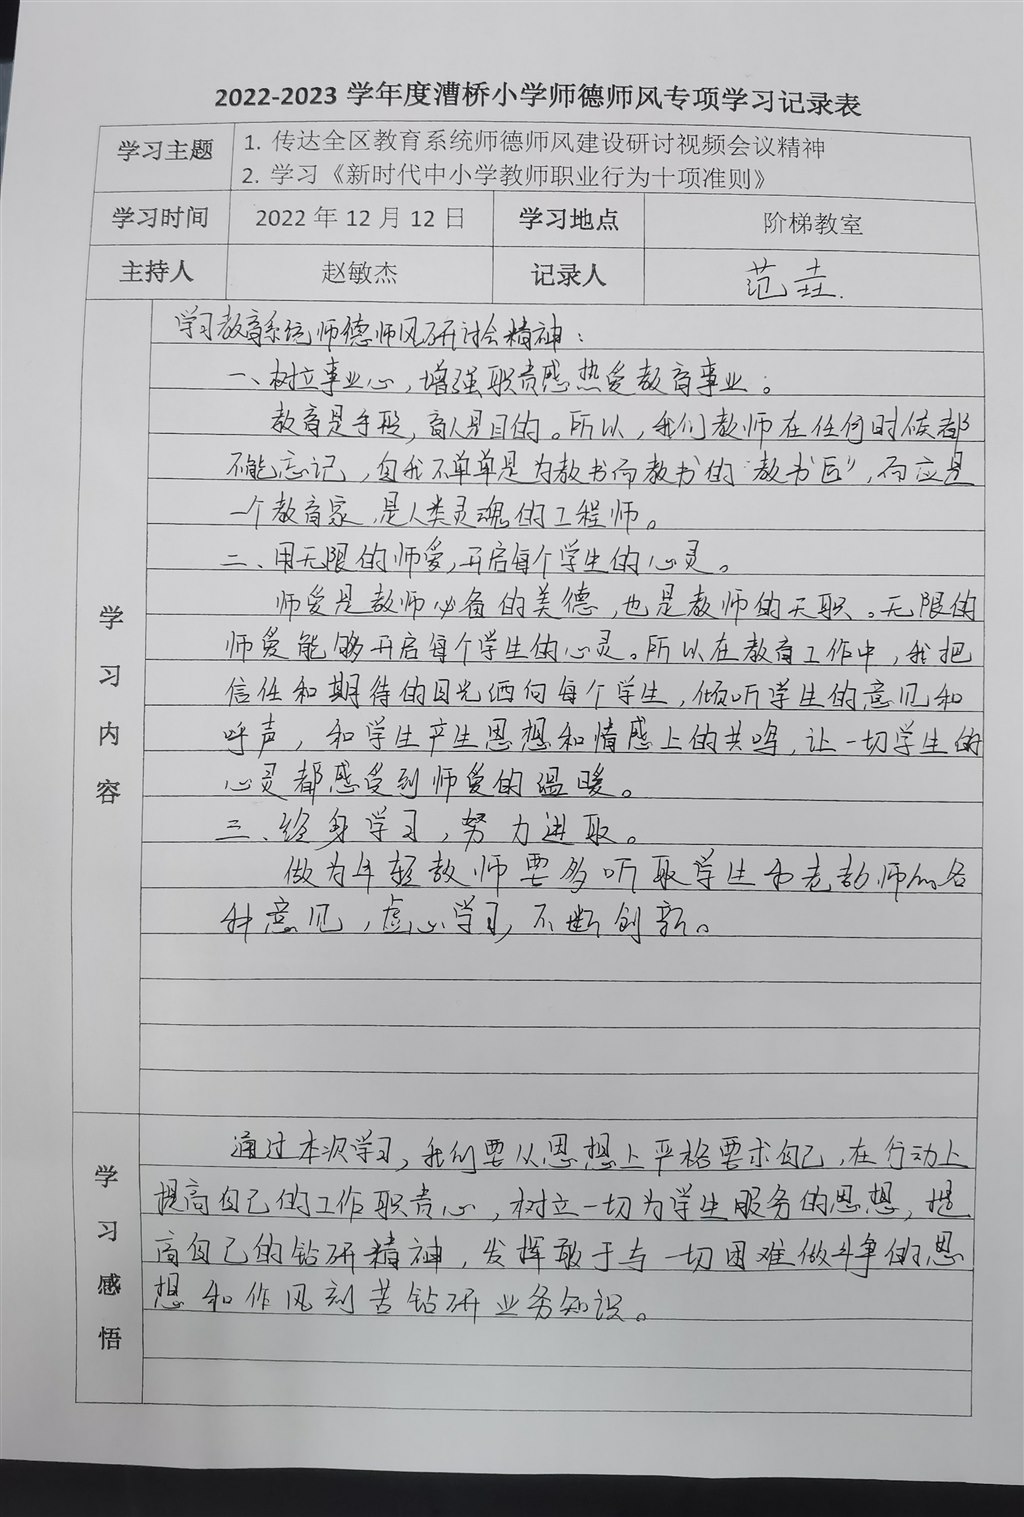 2022-2023 学年度漕桥小学师德师风专项学习记录表
学习主题
1. 传达全区教育系统师德师风建设研讨视频会议精神
2. 学习《新时代中小学教师职业行为十项准则》
学习时间 2022 年 12 月 12 日 学习地点 阶梯教室
主持人 赵敏杰 记录人 范垚.
学习内容
学习教育系统师德师风研讨会精神：
一、树立事业心，增强职责感热爱教育事业。
教育是手段，育人是目的。所以，我们教师在任何时候都
不能忘记，自我不单单是为教书而教书的“教书匠”，而应是
一个教育家，是人类灵魂的工程师。
二、用无限的师爱，开启每个学生的心灵。
师爱是教师必备的美德，也是教师的天职。无限的
师爱能够开启每个学生的心灵。所以在教育工作中，我把
信任和期待的目光洒向每个学生，倾听学生的意见和
呼声，和学生产生思想和情感上的共鸣，让一切学生的
心灵都感受到师爱的温暖。
三、终身学习，努力进取。
做为年轻教师要多听取学生和老教师的各
种意见，虚心学习，不断创新。
学习感悟
通过本次学习，我们要从思想上严格要求自己，在行动上
提高自己的工作职责心，树立一切为学生服务的思想，提
高自己的钻研精神，发挥敢于与一切困难做斗争的思
想和作风刻苦钻研业务知识。